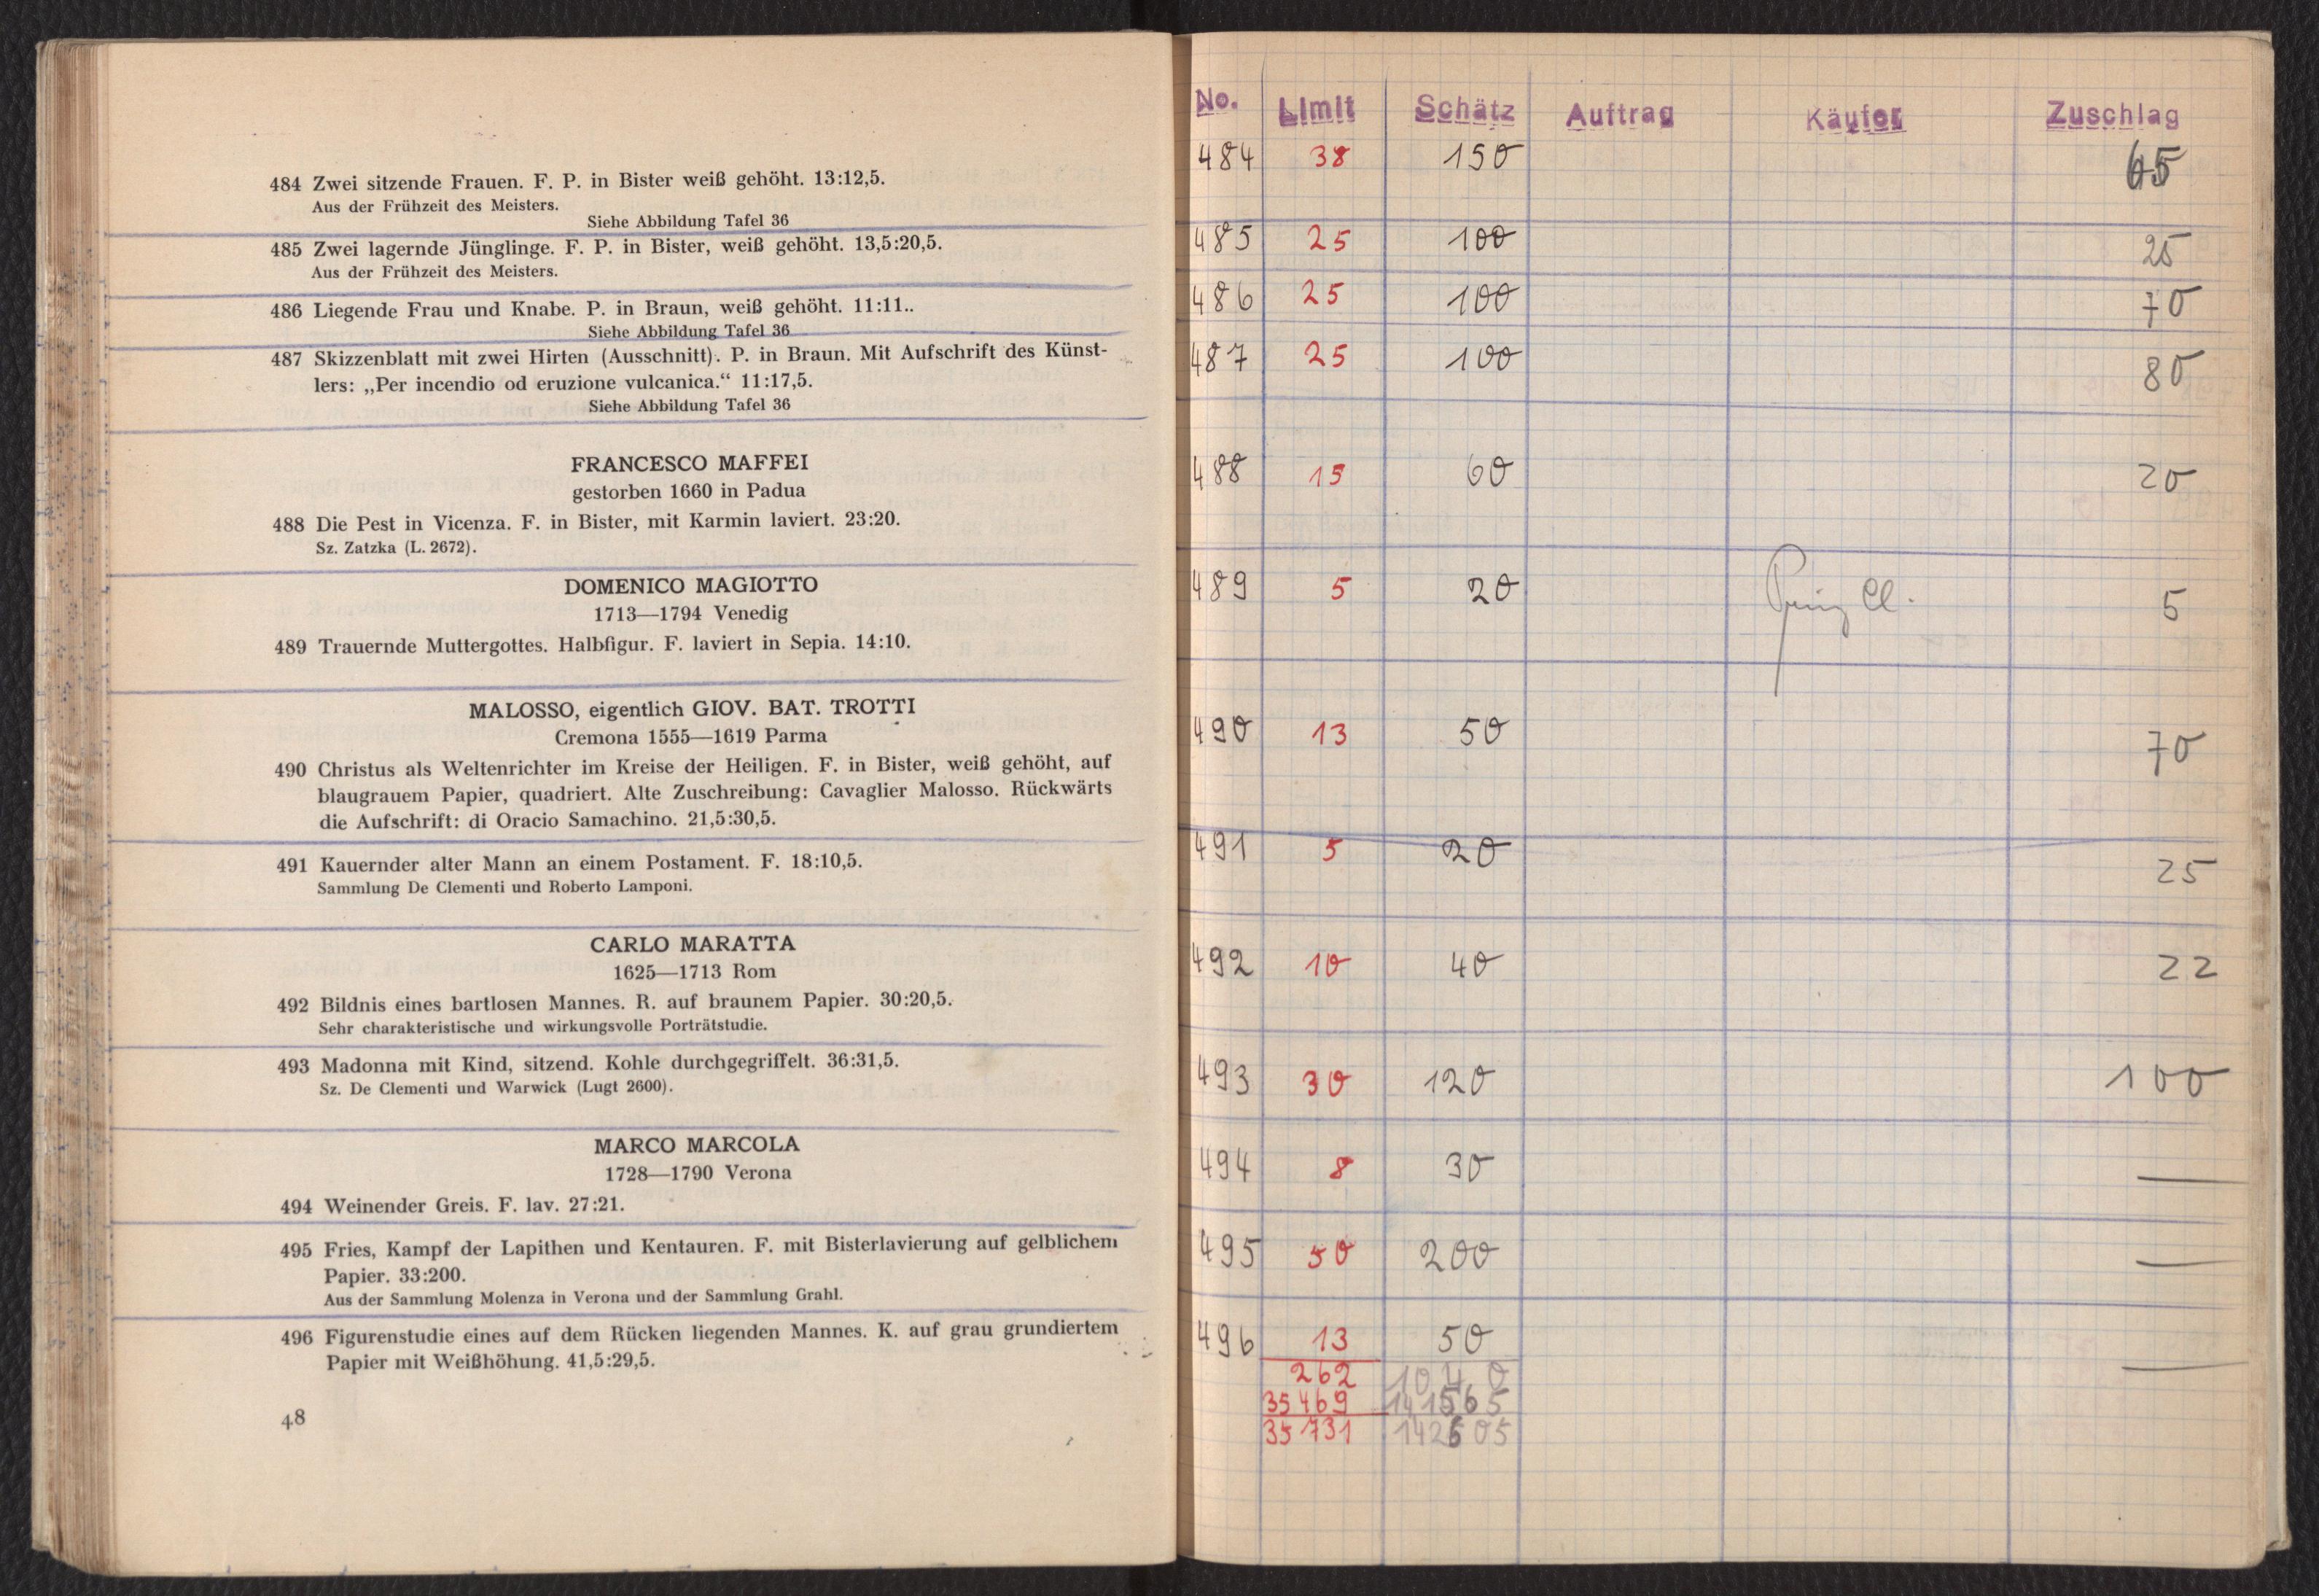 484 Zwei sitzende Frauen. F. P. in Bister weiß gehöht. 13:12,5.
Aus der Frühzeit des Meisters.
Siehe Abbildung Tafel 36
485 Zwei lagernde Jünglinge. F. P. in Bister, weiß gehöht. 13,5:20,5.
Aus der Frühzeit des Meisters.
486 Liegende Frau und Knabe. P. in Braun, weiß gehöht. 11:11..
Siehe Abbildung Tafel 36
487 Skizzenblatt mit zwei Hirten (Ausschnitt). P. in Braun. Mit Aufschrift des Künst-
lers: „Per incendio od eruzione vulcanica.“ 11:17,5.
Siehe Abbildung Tafel 36
FRANCESCO MAFFEI
gestorben 1660 in Padua
488 Die Pest in Vicenza. F. in Bister, mit Karmin laviert. 23:20.
Sz. Zatzka (L. 2672).
DOMENICO MAGIOTTO
1713—1794 Venedig
489 Trauernde Muttergottes. Halbfigur. F. laviert in Sepia. 14:10.
MALOSSO, eigentlich GIOV. BAT. TROTTI
Cremona 1555—1619 Parma
490 Christus als Weltenrichter im Kreise der Heiligen. F. in Bister, weiß gehöht, auf
blaugrauem Papier, quadriert. Alte Zuschreibung: Cavaglier Malosso. Rückwärts
die Aufschrift: di Oracio Samachino. 21,5:30,5.
491 Kauernder alter Mann an einem Postament. F. 18:10,5.
Sammlung De Clementi und Roberto Lamponi.
CARLO MARATTA
1625—1713 Rom
492 Bildnis eines bartlosen Mannes. R. auf braunem Papier. 30:20,5.
Sehr charakteristische und wirkungsvolle Porträtstudie.
493 Madonna mit Kind, sitzend. Kohle durchgegriffelt. 36:31,5.
Sz. De Clementi und Warwick (Lugt 2600).
MARCO MARCOLA
1728—1790 Verona
494 Weinender Greis. F. lav. 27:21.
495 Fries, Kampf der Lapithen und Kentauren. F. mit Bisterlavierung auf gelblichem
Papier. 33:200.
Aus der Sammlung Molenza in Verona und der Sammlung Grahl.
496 Figurenstudie eines auf dem Rücken liegenden Mannes. K. auf grau grundiertem
Papier mit Weißhöhung. 41,5:29,5.
48
No. Limit Schätz Auftrag Käufer Zuschlag
484 38 150 65
485 25 100 25
486 25 100 70
487 25 100 80
488 15 60 20
489 5 20 Prinz Cl. 5
490 13 50 70
491 5 20 25
492 10 40 22
493 30 120 100
494 8 30 —
495 50 200 —
496 13 50 —
262 1040
35469 141565
35731 142605